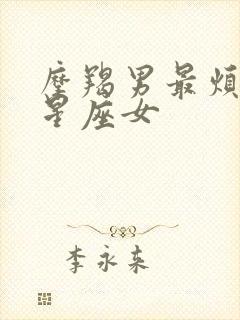 摩羯男最烦
星座女
李永来